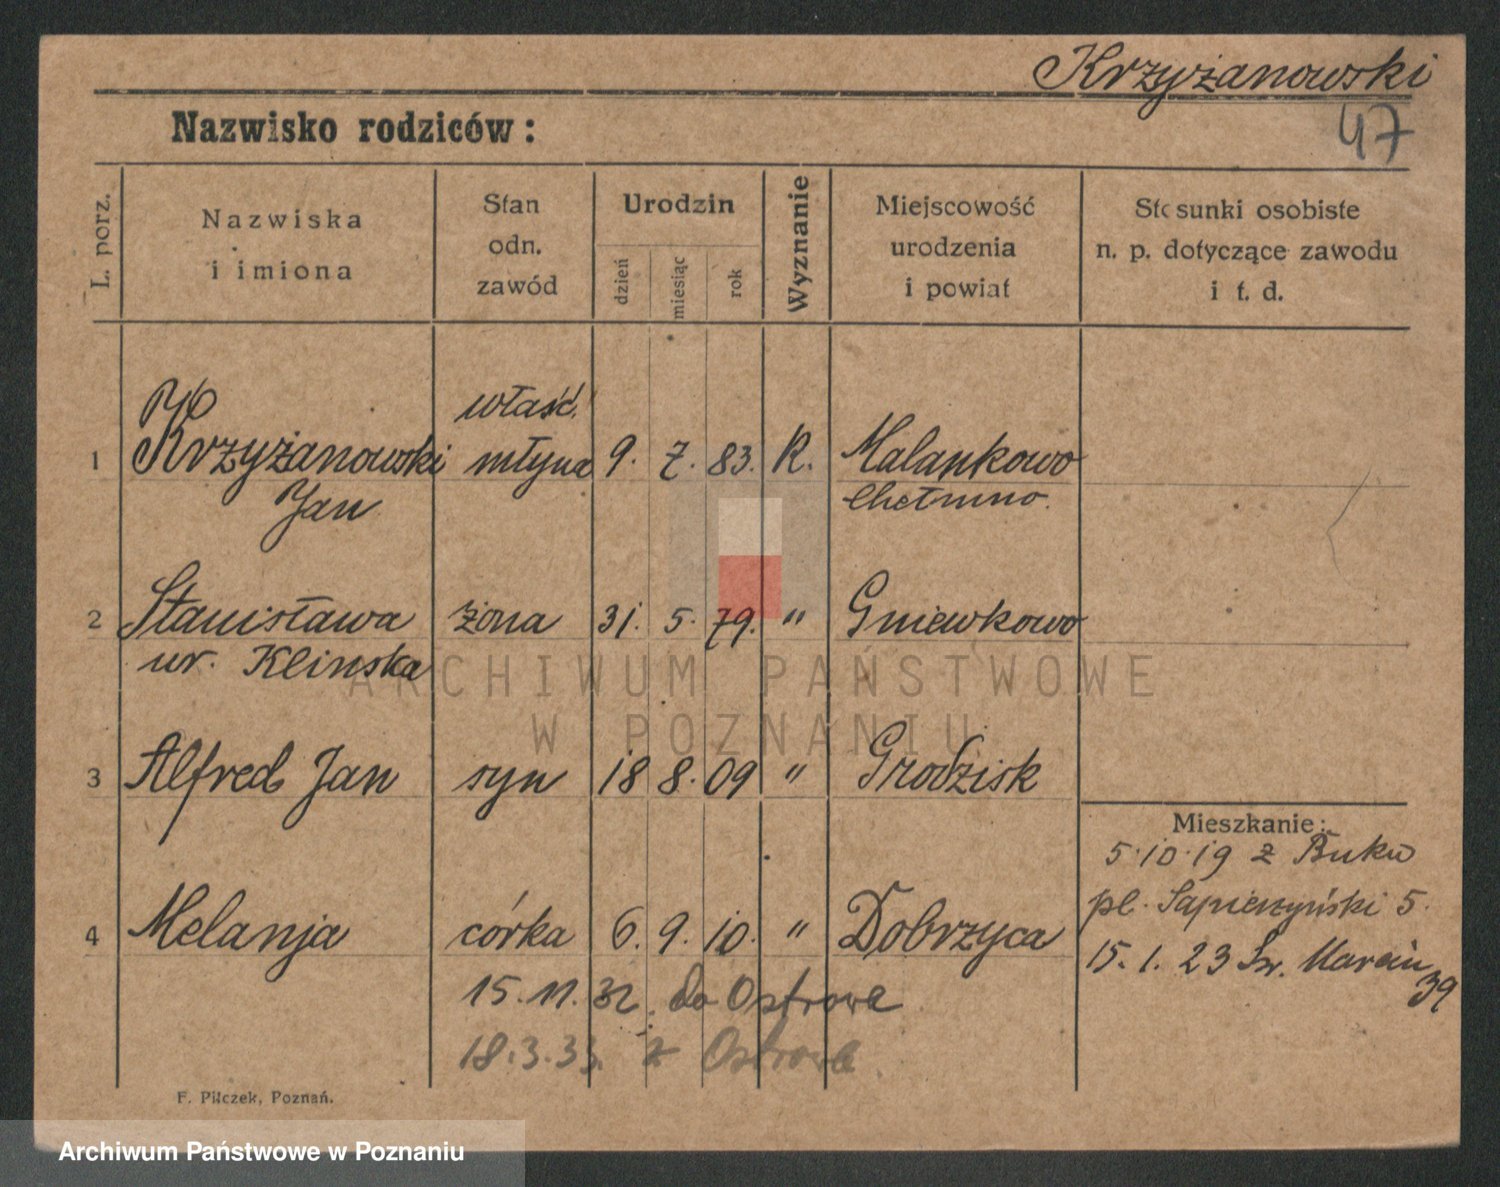 Krzyżanowski
47
Nazwisko rodziców:
L. porz.
Nazwiska
i imiona
Stan
odn.
zawód
Urodzin
dzień
miesiąc
rok
Wyznanie
Miejscowość
urodzenia
i powiat
Stosunki osobiste
n. p. dotyczące zawodu
i t. d.
właść.
1 Krzyżanowski młyna 9. 7. 83. R. Malankowo
Jan Chełmno.
2 Stanisława żona 31. 5. 79. " Gniewkowo
ur. Klinska
3 Alfred Jan syn 18 8. 09 " Grodzisk
Mieszkanie:
5.10.19 z Buku
pl. Sapieżyński 5.
4 Melanja córka 6. 9. 10. " Dobrzyca
15. 1. 23 Św. Marcin
39
15.11.32. do Ostrowa
18.3.33. z Ostrowa.
F. Pilczek, Poznań.
ARCHIWUM PAŃSTWOWE
W POZNANIU
Archiwum Państwowe w Poznaniu